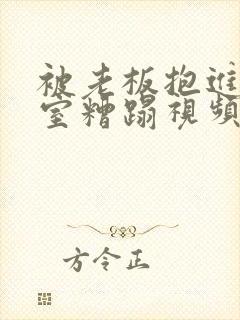 被老板抱进
室糟蹋視頻
方令正